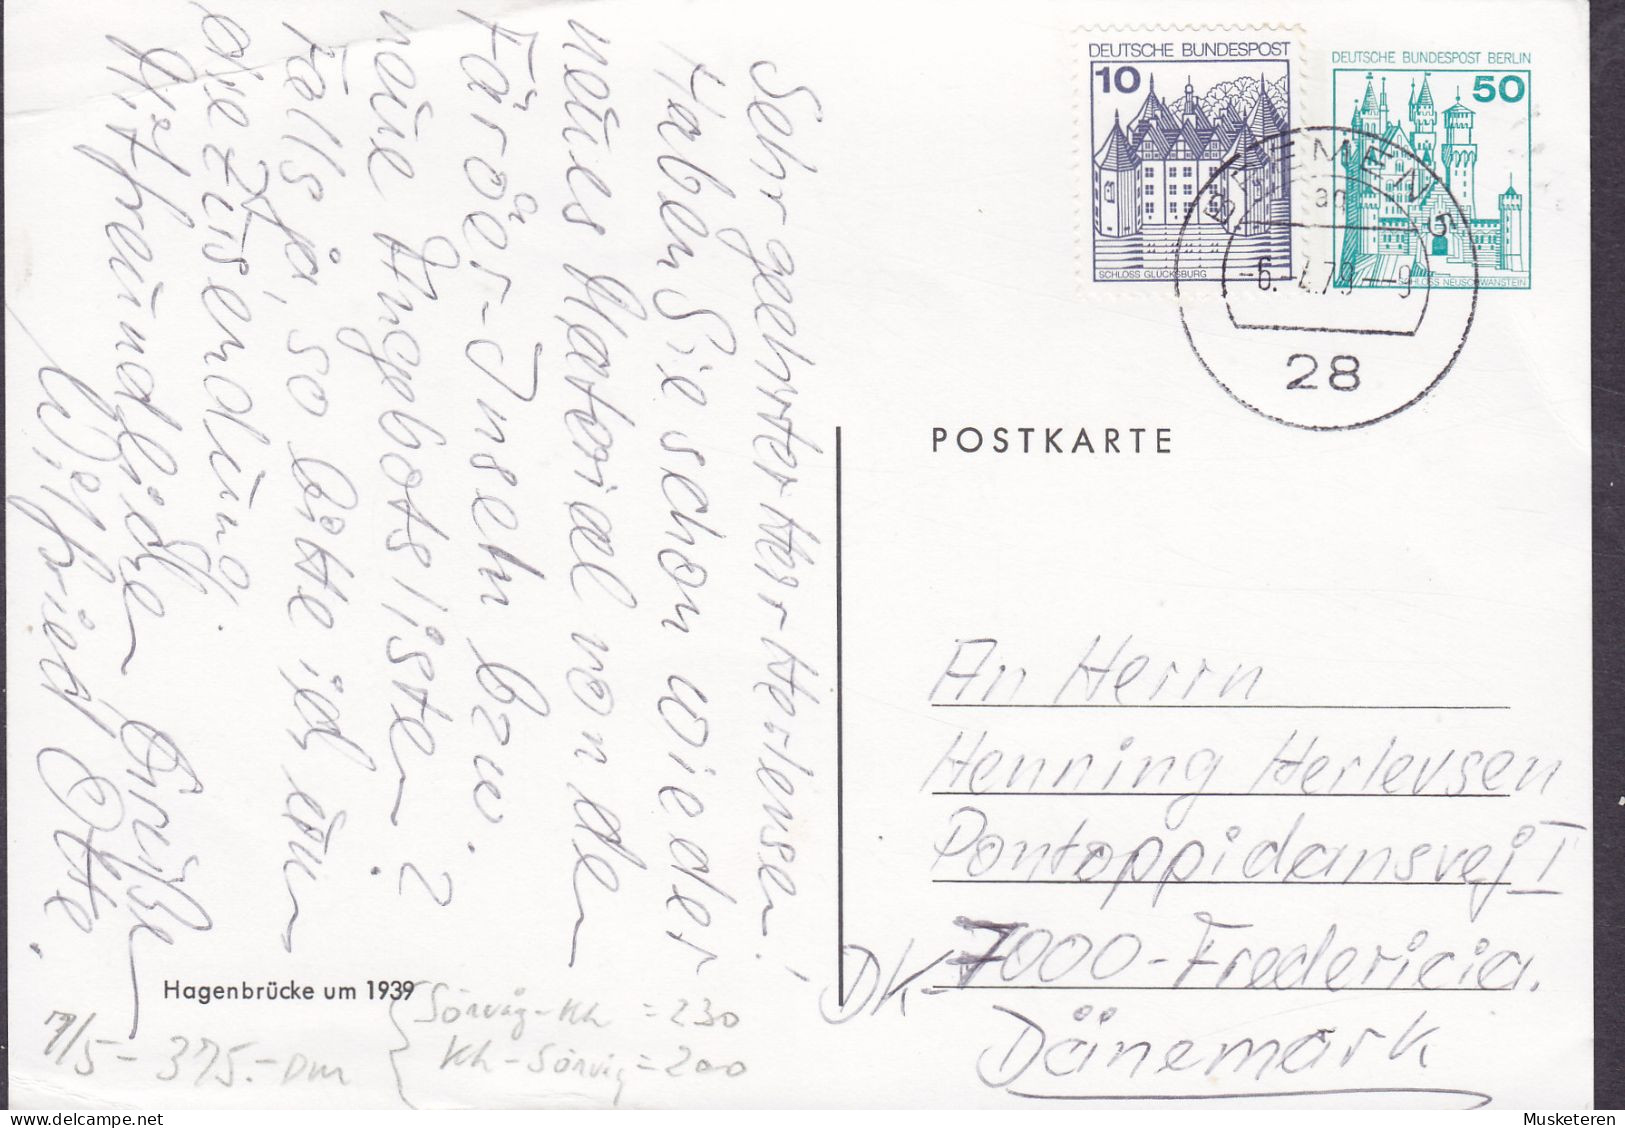 Sehr geehrter Herr Herlevsen!
Haben Sie schon wieder
neues Material von den
Färöer-Inseln bzw.
neue Angebotsliste?
Falls ja, so bitte ich um
die Zusendung.
Mit freundlichen Grüßen
Wilfried Otte.
DEUTSCHE BUNDESPOST
10
SCHLOSS GLÜCKSBURG
DEUTSCHE BUNDESPOST BERLIN
50
SCHLOSS NEUSCHWANSTEIN
BREMEN 5
aq
-6.-4.79--9
28
POSTKARTE
An Herrn
Henning Herlevsen
Pontoppidansvej 1
DK-7000-Fredericia.
Dänemark
Hagenbrücke um 1939
7/5-375.-DM
Sörvåg-Kh = 230
Kh-Sörvåg = 200
Musketeren